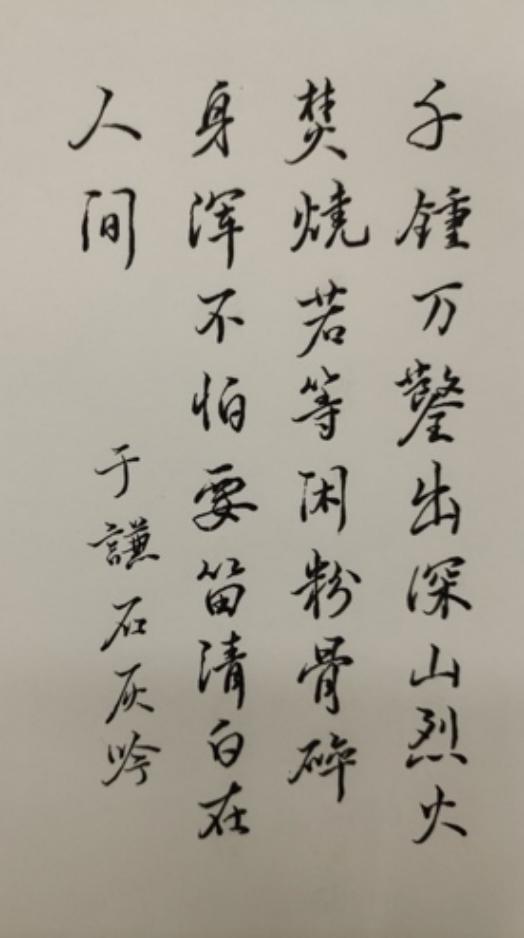 千锺万鑿出深山烈火
焚燒若等闲粉骨碎
身浑不怕要笛清白在
人间
于謙石灰吟